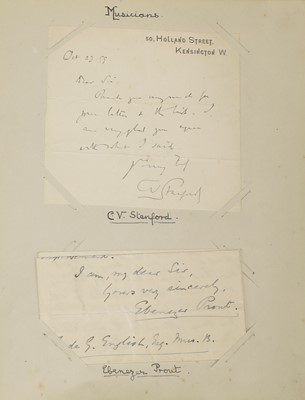 Musicians.
50, Holland Street,
Kensington W.
Oct. 27.
Dear Sir
Thank you very much for
your letter & the
am very glad you agree
with what I said
CV Stanford
C.V. Stanford.
I am, my dear Sir,
Yours very sincerely,
Ebenezer Prout.
de G. English, Esq. Mus. B.
Ebenezer Prout.